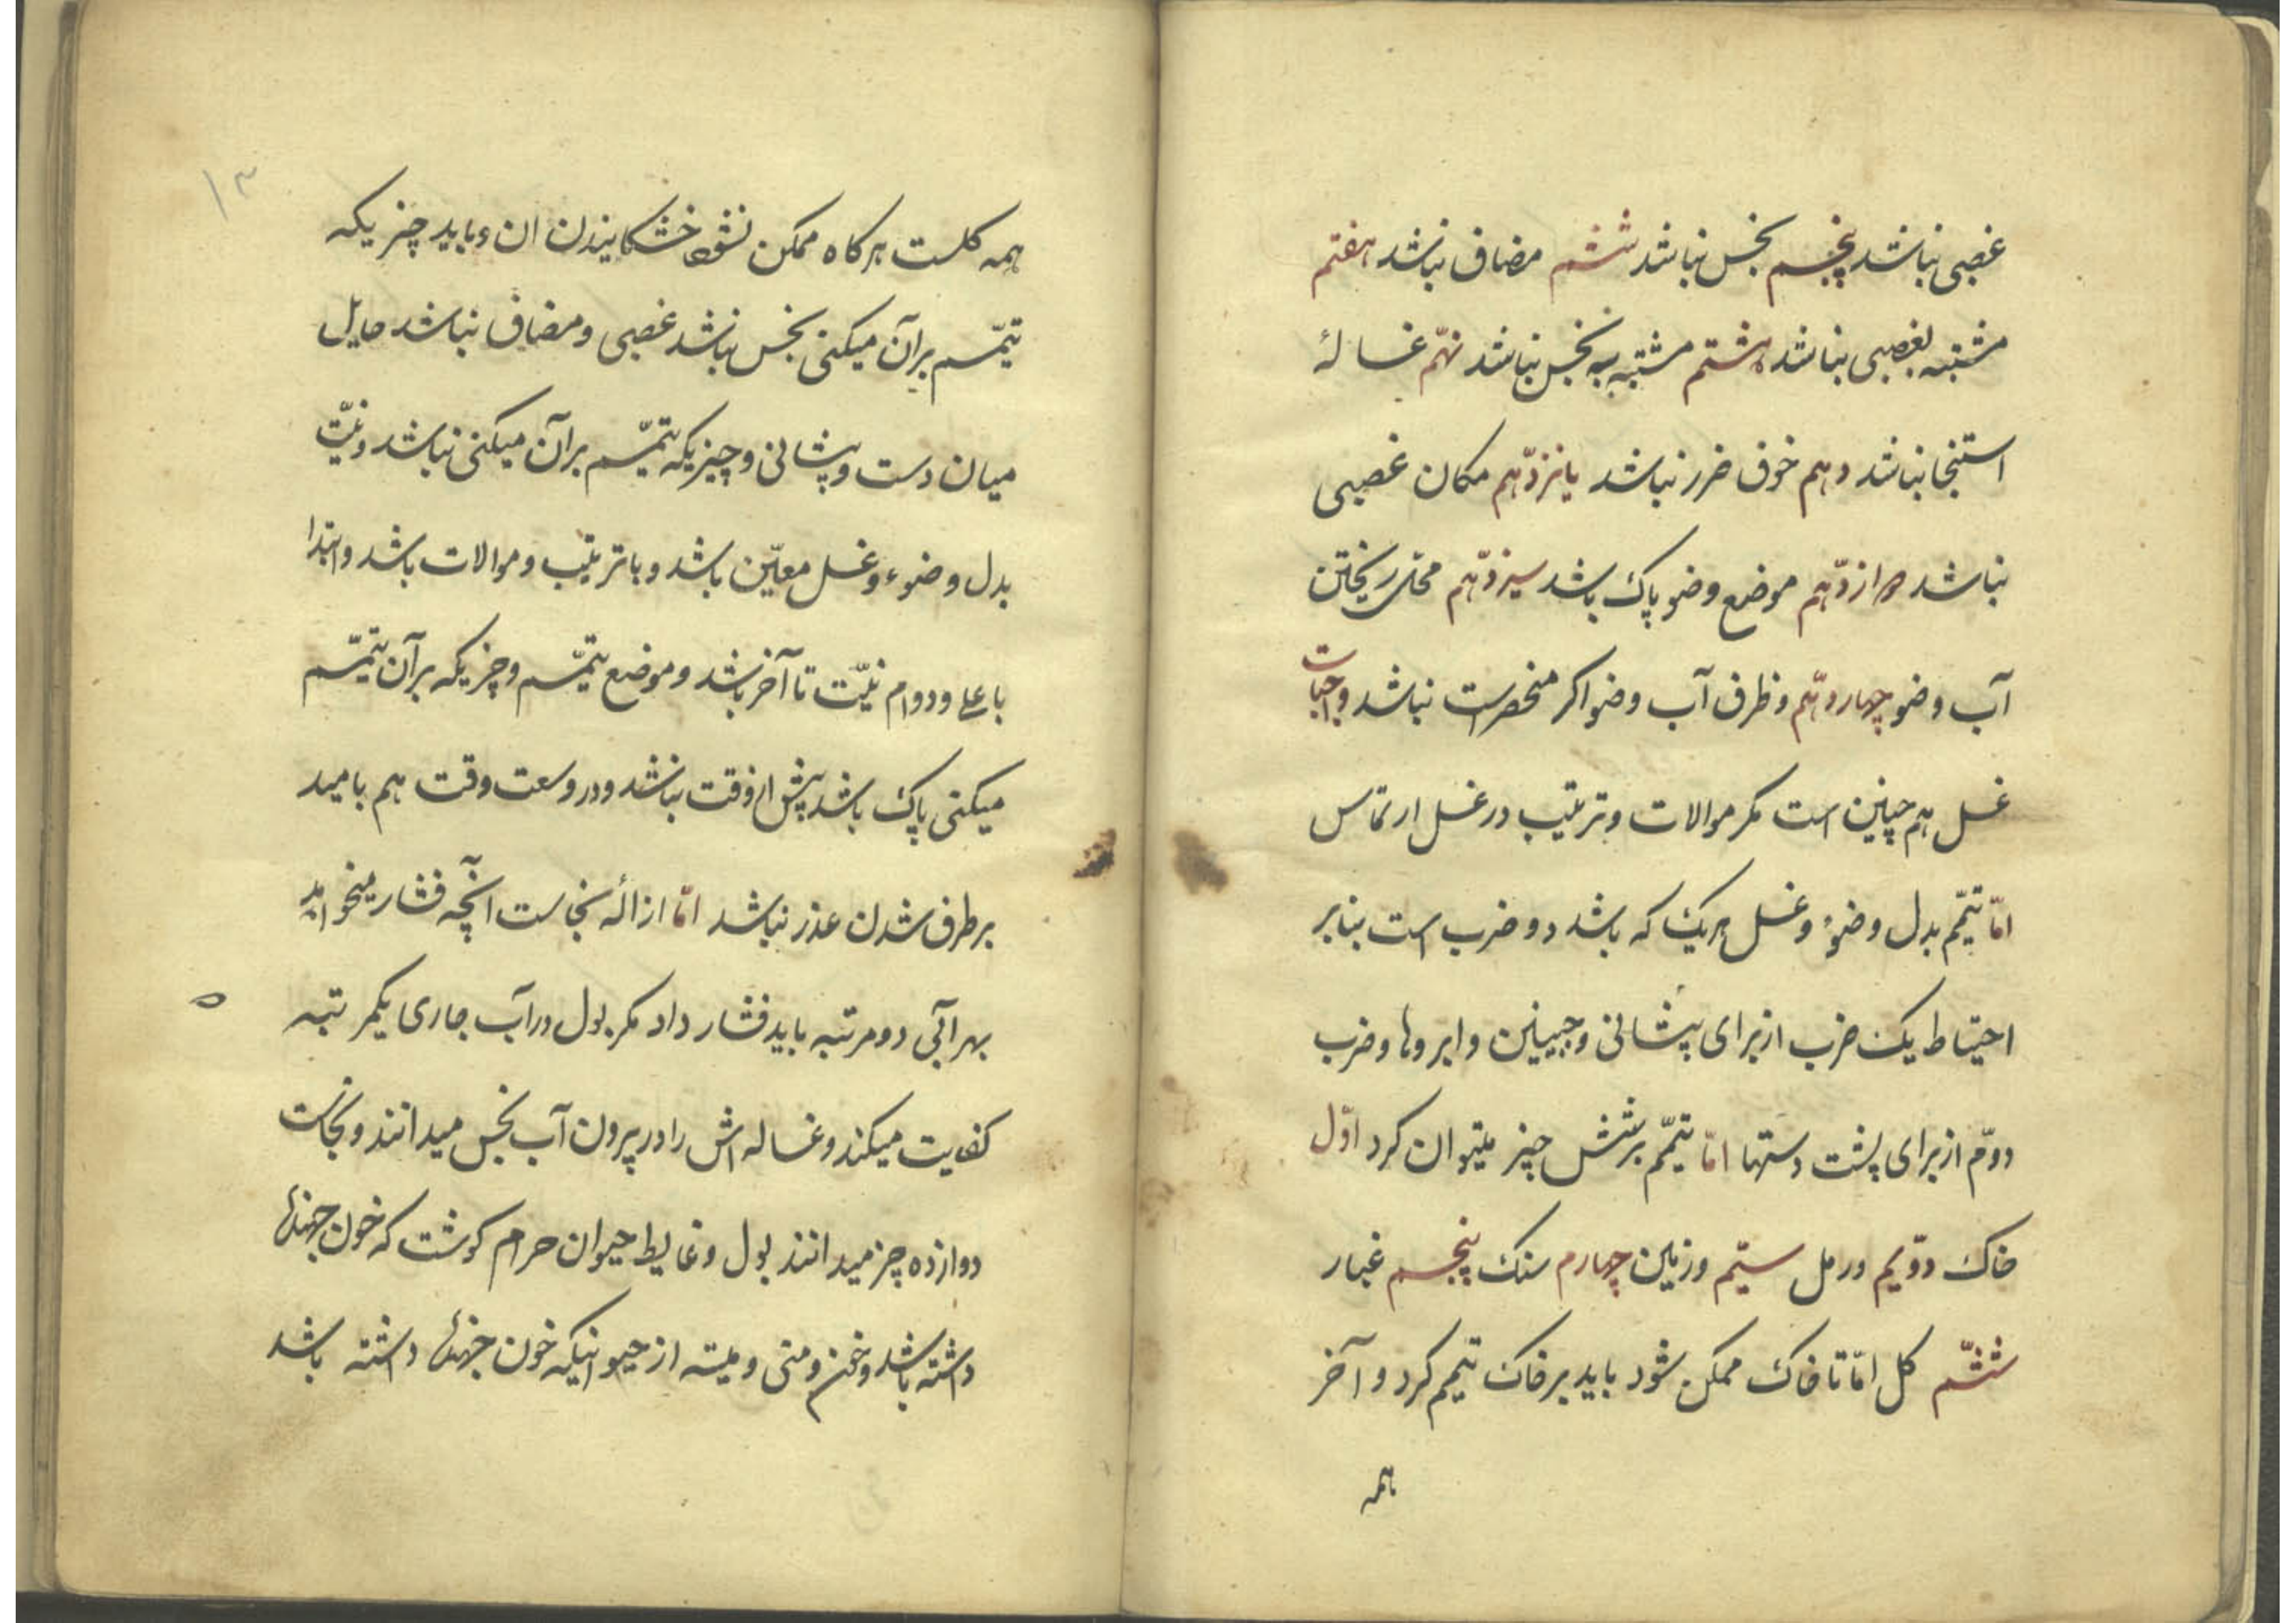 غصبی نباشد پنجم نجس نباشد ششم مضاف نباشد هفتم
مشتبه بغصبی نباشد هشتم مشتبه به نجس نباشد نهم غسالهٔ
استنجا نباشد دهم خوف ضرر نباشد یانزدهم مکان غصبی
نباشد دوازدهم موضع وضو پاک باشد سیزدهم محل ریختن
آب وضو چهاردهم وظرف آب وضو اکر منحصرست نباشد واجبات
غسل هم چنین است مکر موالات وترتیب در غسل ارتماس
امّا تیمّم بدل وضوء وغسل هریک که باشد دو ضرب است بنابر
احتیاط یک ضرب از برای پیشانی وجبینین وابروها وضرب
دوّم از برای پشت دستها امّا تیمّم بر شش چیز میتوان کرد اوّل
خاک دوّیم ورمل سیّم وزمین چهارم سنک پنجم غبار
ششّم کل امّا تا خاک ممکن شود باید بر خاک تیمم کرد و آخر
همه
۱۳
همه کلست هرکاه ممکن نشود خشکانیدن ان وباید چیزیکه
تیمّم بر آن میکنی نجس نباشد غصبی ومضاف نباشد حایل
میان دست وپیشانی وچیزیکه تیمّم بر آن میکنی نباشد ونیّت
بدل وضوء وغسل معیّن باشد وباترتیب وموالات باشد وابتدا
باعلی ودوام نیّت تا آخر باشد وموضع تیمّم وچیزیکه بر آن تیمّم
میکنی پاک باشد پیش از وقت نباشد ودر وسعت وقت هم بامید
برطرف شدن عذر نباشد امّا ازالهٔ نجاست آنچه فشار میخواهد
بهر آبی دو مرتبه باید فشار داد مکر بول در آب جاری یکمرتبه
کفایت میکند وغساله اش را در بیرون آب نجس میدانند ونجاست
دوازده چیز میدانند بول وغایط حیوان حرام کوشت که خون جهنده
داشته باشد وخون ومنی ومیته از حیوانیکه خون جهنده داشته باشد